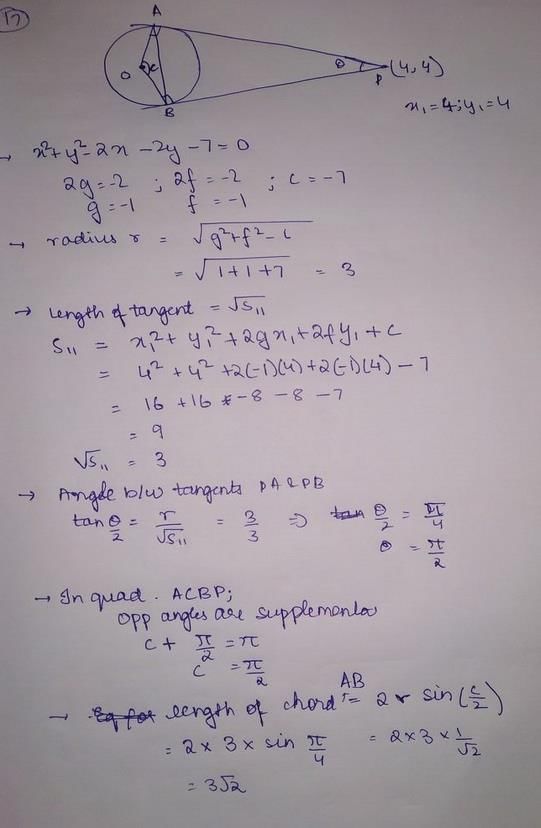 17
A
O
C
B
θ
P
(4,4)
x₁=4; y₁=4
→ x²+y²-2x-2y-7=0
2g=-2 ; 2f=-2 ; c=-7
g=-1 f=-1
→ radius r = √(g²+f²-c)
= √(1+1+7) = 3
→ Length of tangent = √S₁₁
S₁₁ = x₁²+y₁²+2gx₁+2fy₁+c
= 4²+4²+2(-1)(4)+2(-1)(4)-7
= 16+16-8-8-7
= 9
√S₁₁ = 3
→ Angle b/w tangents PA & PB
tan θ/2 = r/√S₁₁ = 3/3 ⇒ θ/2 = π/4
θ = π/2
→ In quad. ACBP;
opp angles are
C + π/2 = π
C = π/2
→ length of chord AB = 2r sin(C/2)
= 2×3×sin π/4 = 2×3×1/√2
= 3√2